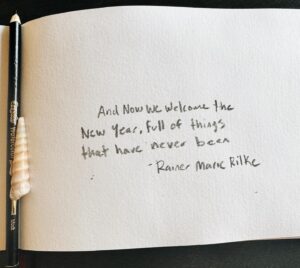 And Now we welcome the
New Year, full of things
that have never been
-Rainer Marie Rilke